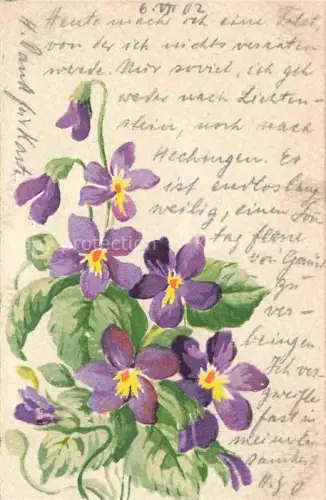 6. VII 02
Heute mache ich eine Fahrt,
von der ich nichts verraten
werde. Nur soviel, ich geh
weder nach Liechten-
stein, noch nach
Hechingen. Es
ist endlos lang
weilig, einen Son
tag
von
zu
ver-
bringen.
Ich ver-
zweifle
fast in
meiner Ein
samkeit
H. Dank für Karte